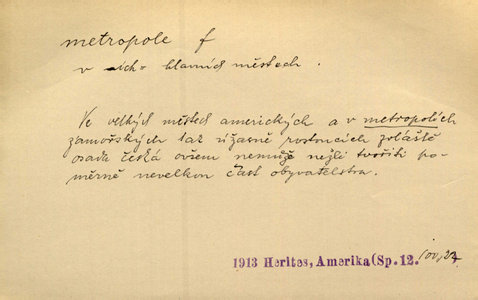 metropole f
v jich hlavních městech.
Ve velkých městech amerických a v metropolích
zámořských tak úžasně rostoucích zvláště
osada česká ovšem nemůže nežli tvořiti po-
měrně nevelkou část obyvatelstva.
1913 Herites, Amerika (Sp. 12.